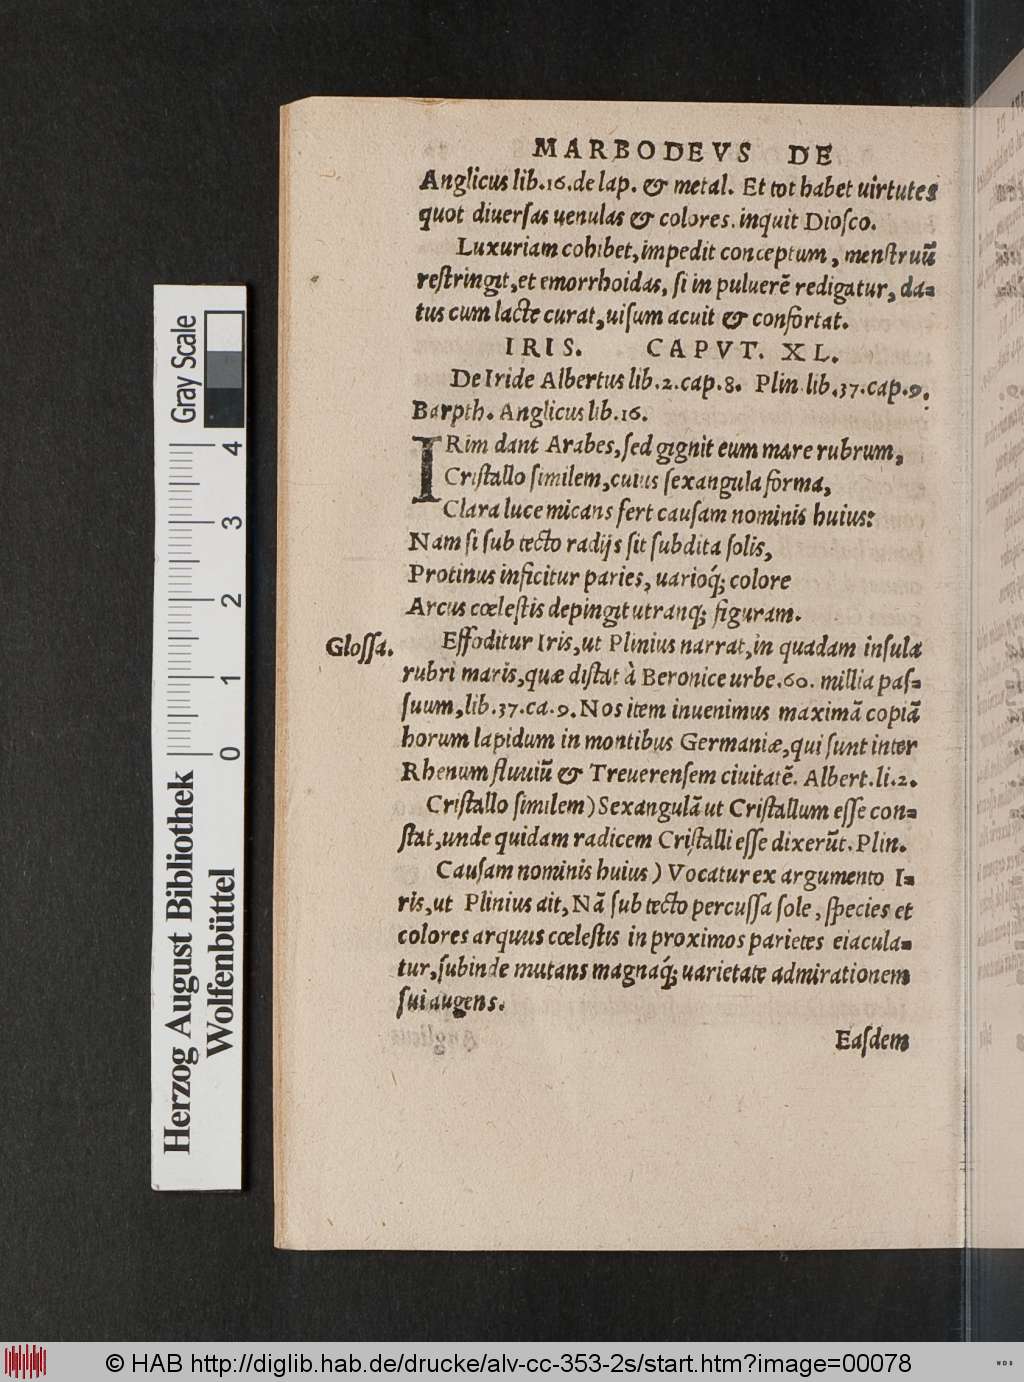 MARBODEVS DE
Anglicus lib.16.de lap. & metal. Et tot habet uirtutes
quot diuerſas uenulas & colores. inquit Dioſco.
Luxuriam cohibet, impedit conceptum, menſtruū
reſtringit, et emorrhoidas, ſi in puluerē redigatur, da-
tus cum lacte curat, uiſum acuit & confortat.
IRIS. CAPVT. XL.
De Iride Albertus lib.2.cap.8. Plin lib.37.cap.9.
Barpth. Anglicus lib.16.
IRim dant Arabes, ſed gignit eum mare rubrum,
Criſtallo ſimilem, cuius ſexangula forma,
Clara luce micans fert cauſam nominis huius:
Nam ſi ſub tecto radijs ſit ſubdita ſolis,
Protinus inficitur paries, uarioq́; colore
Arcus cœleſtis depingit utranq; figuram.
Gloſſa. Effoditur Iris, ut Plinius narrat, in quadam inſula
rubri maris, quæ diſtat à Beronice urbe .60. millia paſ-
ſuum, lib.37.ca.9. Nos item inuenimus maximā copiā
horum lapidum in montibus Germaniæ, qui ſunt inter
Rhenum fluuiū & Treuerenſem ciuitatē. Albert.li.2.
Criſtallo ſimilem) Sexangulā ut Criſtallum eſſe con-
ſtat, unde quidam radicem Criſtalli eſſe dixerūt. Plin.
Cauſam nominis huius) Vocatur ex argumento I-
ris, ut Plinius ait, Nā ſub tecto percuſſa ſole, ſpecies et
colores arquus cœleſtis in proximos parietes eiacula-
tur, ſubinde mutans magnaq́; uarietate admirationem
ſui augens.
Eaſdem
Gray Scale
4
3
2
1
0
Herzog August Bibliothek
Wolfenbüttel
© HAB http://diglib.hab.de/drucke/alv-cc-353-2s/start.htm?image=00078